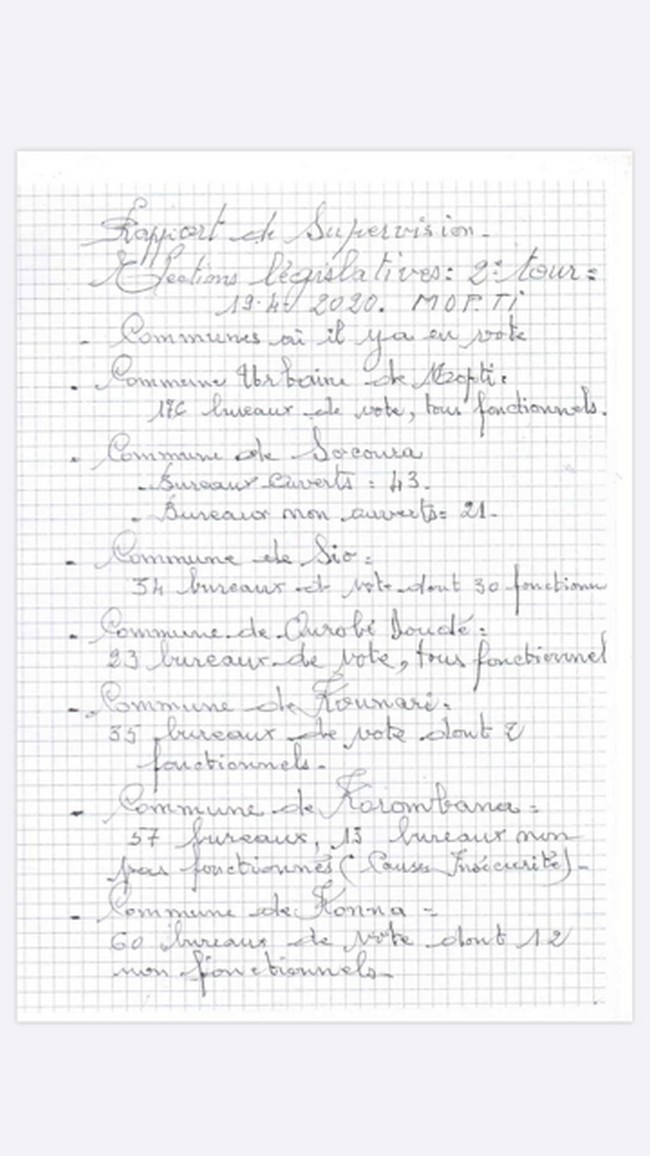 Rapport de Supervision.
Elections législatives: 2e tour:
19.4. 2020. MOPTi
- Communes où il ya eu vote
- Commune Urbaine de Mopti:
176 bureaux de vote, tous fonctionnels.
- Commune de Socoura
- Bureaux ouverts: 43.
- Bureaux non ouverts= 21.
- Commune de Sio:
34 bureaux de vote dont 30 fonctionn
- Commune de Ourobé Doudé:
23 bureaux de vote, tous fonctionnel
- Commune de Kounari:
35 bureaux de vote dont
fonctionnels.
- Commune de Korombana:
57 bureaux, 13 bureaux non
pas fonctionnés (Causes Insécurité).
- Commune de Konna =
60 bureaux de vote dont 12
non fonctionnels.